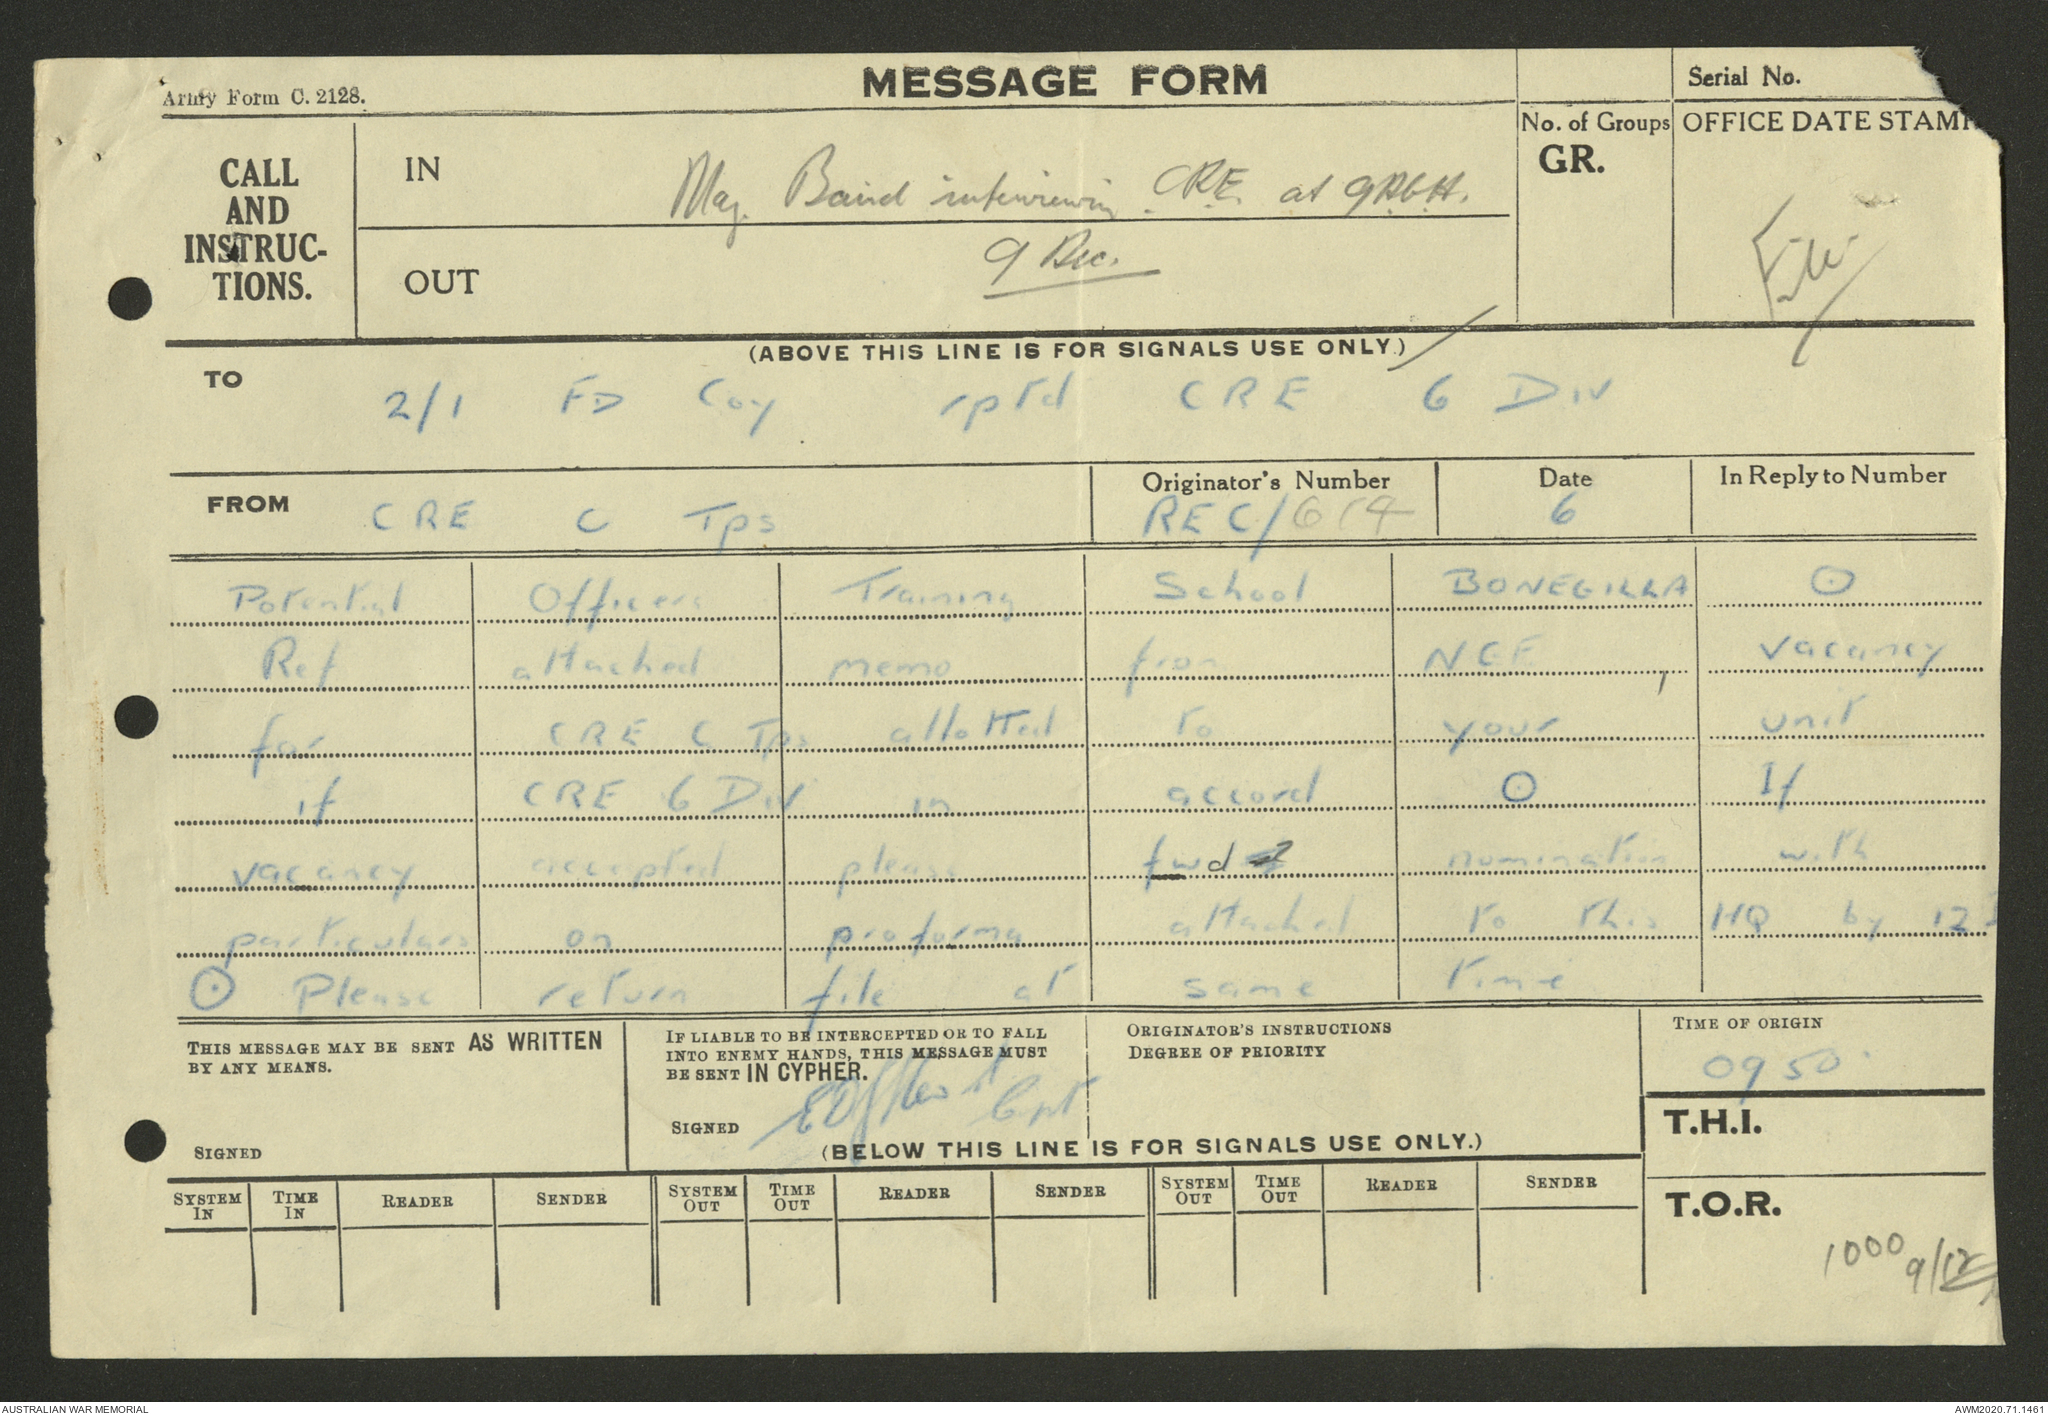 Army Form C. 2128.
MESSAGE FORM
Serial No.
CALL AND INSTRUCTIONS.
IN
Maj. Baird interviewing C.R.E. at 9 A.G.H.
9 Dec.
OUT
No. of Groups
GR.
OFFICE DATE STAMP
File
(ABOVE THIS LINE IS FOR SIGNALS USE ONLY.)
TO
2/1 FD Coy rptd CRE 6 Div
FROM CRE C Tps
Originator's Number
REC/614
Date
6
In Reply to Number
Potential Officers Training School BONEGILLA ⊙
Ref attached memo from NGF, vacancy
for CRE C Tps allotted to your unit
if CRE 6 Div in accord ⊙ If
vacancy accepted please fwd nomination with
particulars on proforma attached to this HQ by 12
⊙ Please return file at same time
THIS MESSAGE MAY BE SENT AS WRITTEN
BY ANY MEANS.
SIGNED
IF LIABLE TO BE INTERCEPTED OR TO FALL
INTO ENEMY HANDS, THIS MESSAGE MUST
BE SENT IN CYPHER.
SIGNED Capt
ORIGINATOR'S INSTRUCTIONS
DEGREE OF PRIORITY
TIME OF ORIGIN
0950
T.H.I.
(BELOW THIS LINE IS FOR SIGNALS USE ONLY.)
SYSTEM IN
TIME IN
READER
SENDER
SYSTEM OUT
TIME OUT
READER
SENDER
SYSTEM OUT
TIME OUT
READER
SENDER
T.O.R.
1000 9/12
AUSTRALIAN WAR MEMORIAL
AWM2020.71.1461